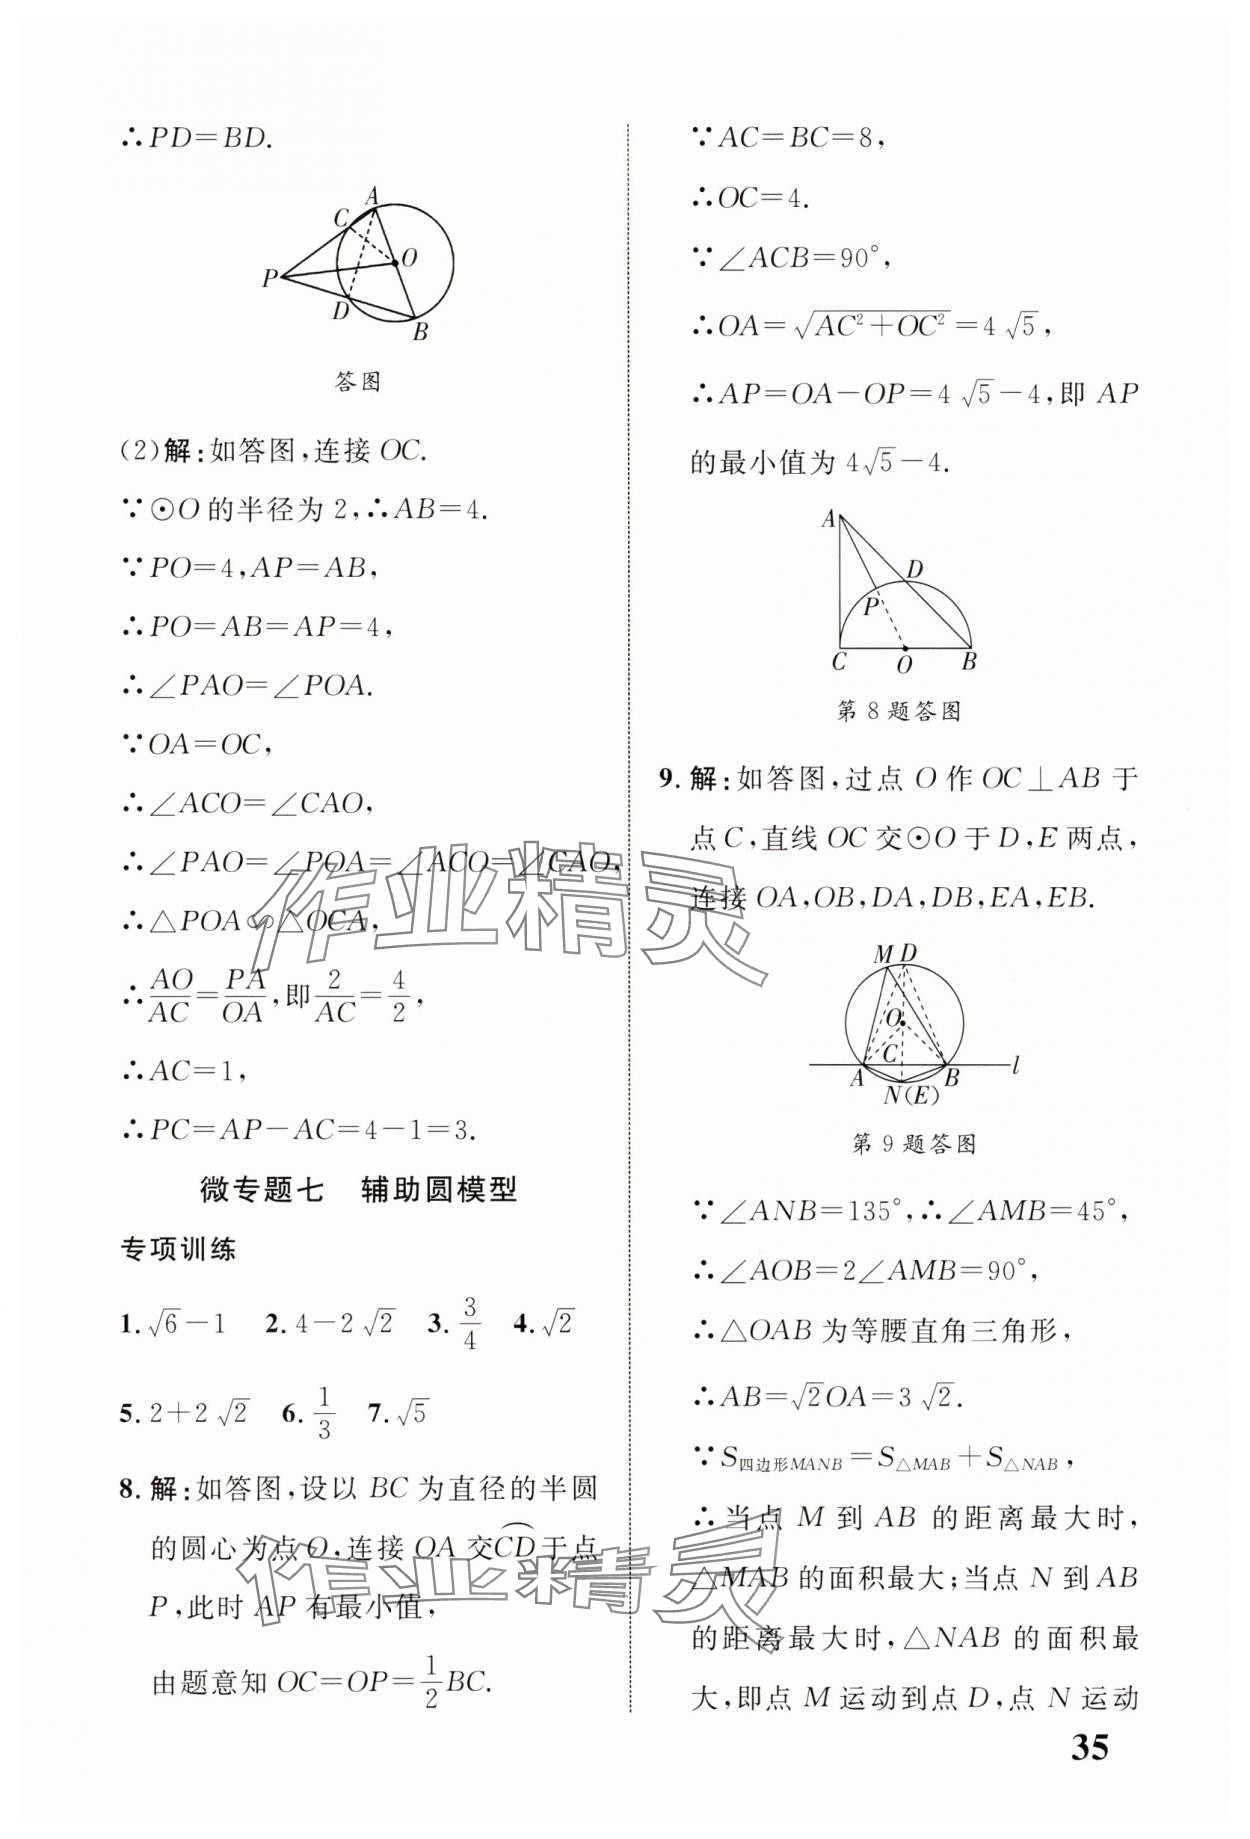 ∴PD=BD.
A
C
O
P
D
B
答图
(2)解:如答图,连接 OC.
∵⊙O 的半径为 2,∴AB=4.
∵PO=4,AP=AB,
∴PO=AB=AP=4,
∴∠PAO=∠POA.
∵OA=OC,
∴∠ACO=∠CAO,
∴∠PAO=∠POA=∠ACO=∠CAO,
∴△POA∽△OCA,
∴AO/AC=PA/OA,即2/AC=4/2,
∴AC=1,
∴PC=AP-AC=4-1=3.
微专题七 辅助圆模型
专项训练
1.√6-1 2.4-2√2 3.3/4 4.√2
5.2+2√2 6.1/3 7.√5
8.解:如答图,设以 BC 为直径的半圆
的圆心为点 O,连接 OA 交⌒CD于点
P,此时 AP 有最小值,
由题意知 OC=OP=1/2BC.
∵AC=BC=8,
∴OC=4.
∵∠ACB=90°,
∴OA=√(AC²+OC²)=4√5,
∴AP=OA-OP=4√5-4,即 AP
的最小值为 4√5-4.
A
D
P
C O B
第 8 题答图
9.解:如答图,过点 O 作 OC⊥AB 于
点 C,直线 OC 交⊙O 于 D,E 两点,
连接 OA,OB,DA,DB,EA,EB.
M D
O
C
A B l
N(E)
第 9 题答图
∵∠ANB=135°,∴∠AMB=45°,
∴∠AOB=2∠AMB=90°,
∴△OAB 为等腰直角三角形,
∴AB=√2OA=3√2.
∵S四边形MANB=S△MAB+S△NAB,
∴当点 M 到 AB 的距离最大时,
△MAB 的面积最大;当点 N 到 AB
的距离最大时,△NAB 的面积最
大,即点 M 运动到点 D,点 N 运动
35
作业精灵
作业精灵